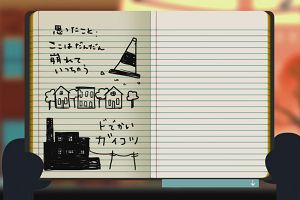 思ったこと:
ここはだんだん
崩れて
いっちゃう
ドでかい
ガイコツ